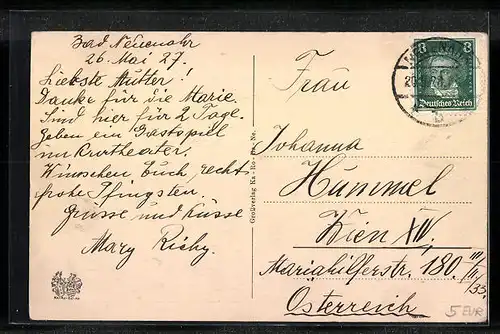 Bad Neuenahr
26. Mai 27.
Liebste Mutter!
Danke für die Marie.
Sind hier für 2 Tage.
Geben ein Gastspiel
im Kurtheater.
Wünschen Euch recht
frohe Pfingsten.
Grüsse und Küsse
Mary Richy.
Großverlag Ka-Ro-
8 8
Deutsches Reich
b
Frau
Johanna
Hummel
Wien XIV,
Mariahilferstr. 180. III/II/33.
Österreich
5 EUR